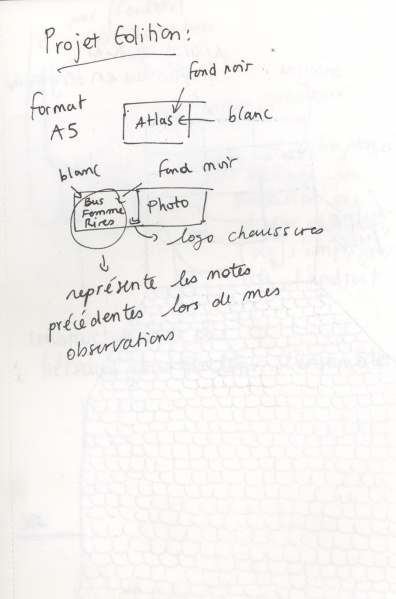 Projet Edition:
fond noir
format
A5
Atlas
blanc
blanc
fond noir
Bus
Femme
Rires
Photo
logo chaussures
représente les notes
précédentes lors de mes
observations